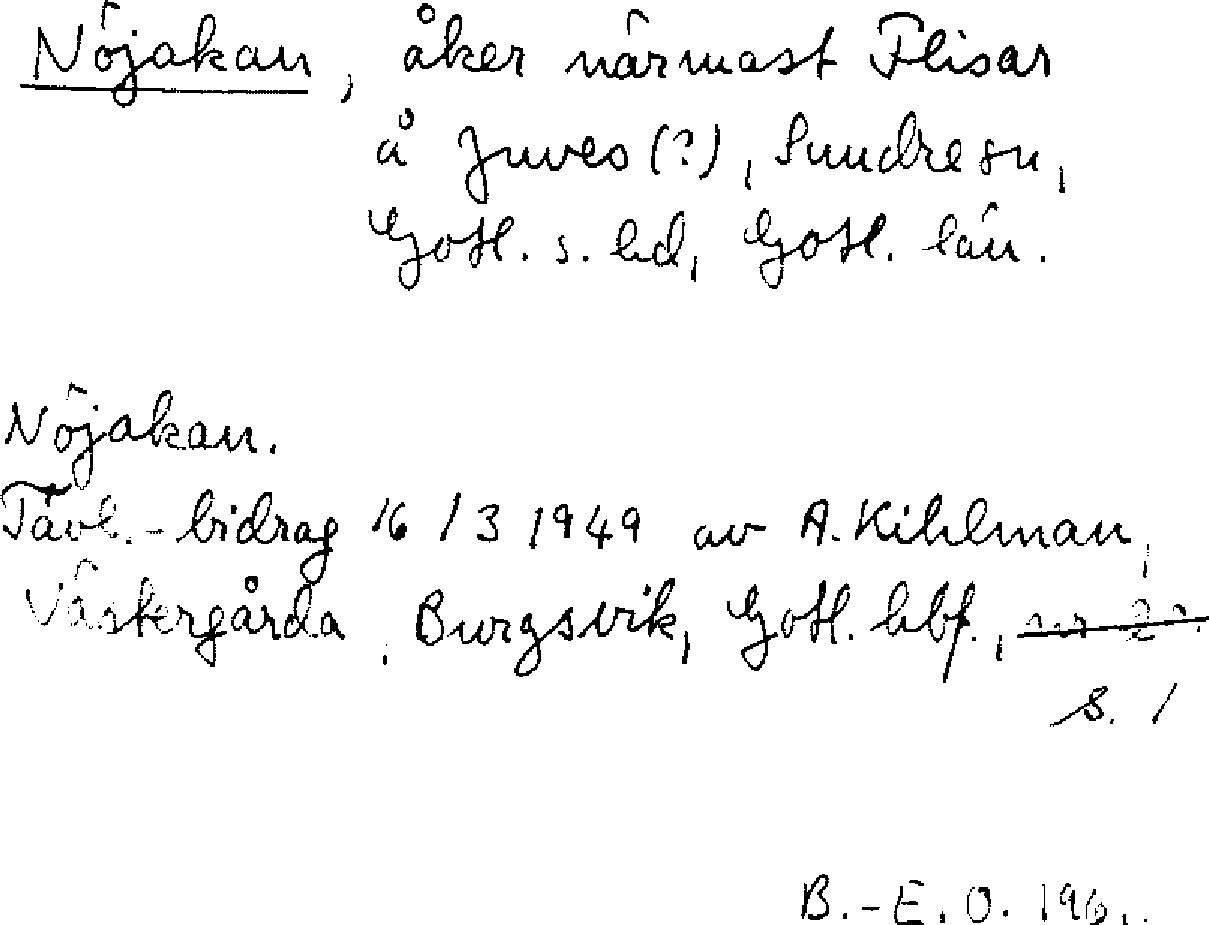 Nöjakan, åker närmast Flisar
å Juves (?), Sundre sn,
Gotl. s. hd, Gotl. län.
Nöjakan.
Tävl.-bidrag 16/3 1949 av A. Kihlman,
Västergårda, Burgsvik, Gotl. hbf.,
s. 1
B.-E. O.